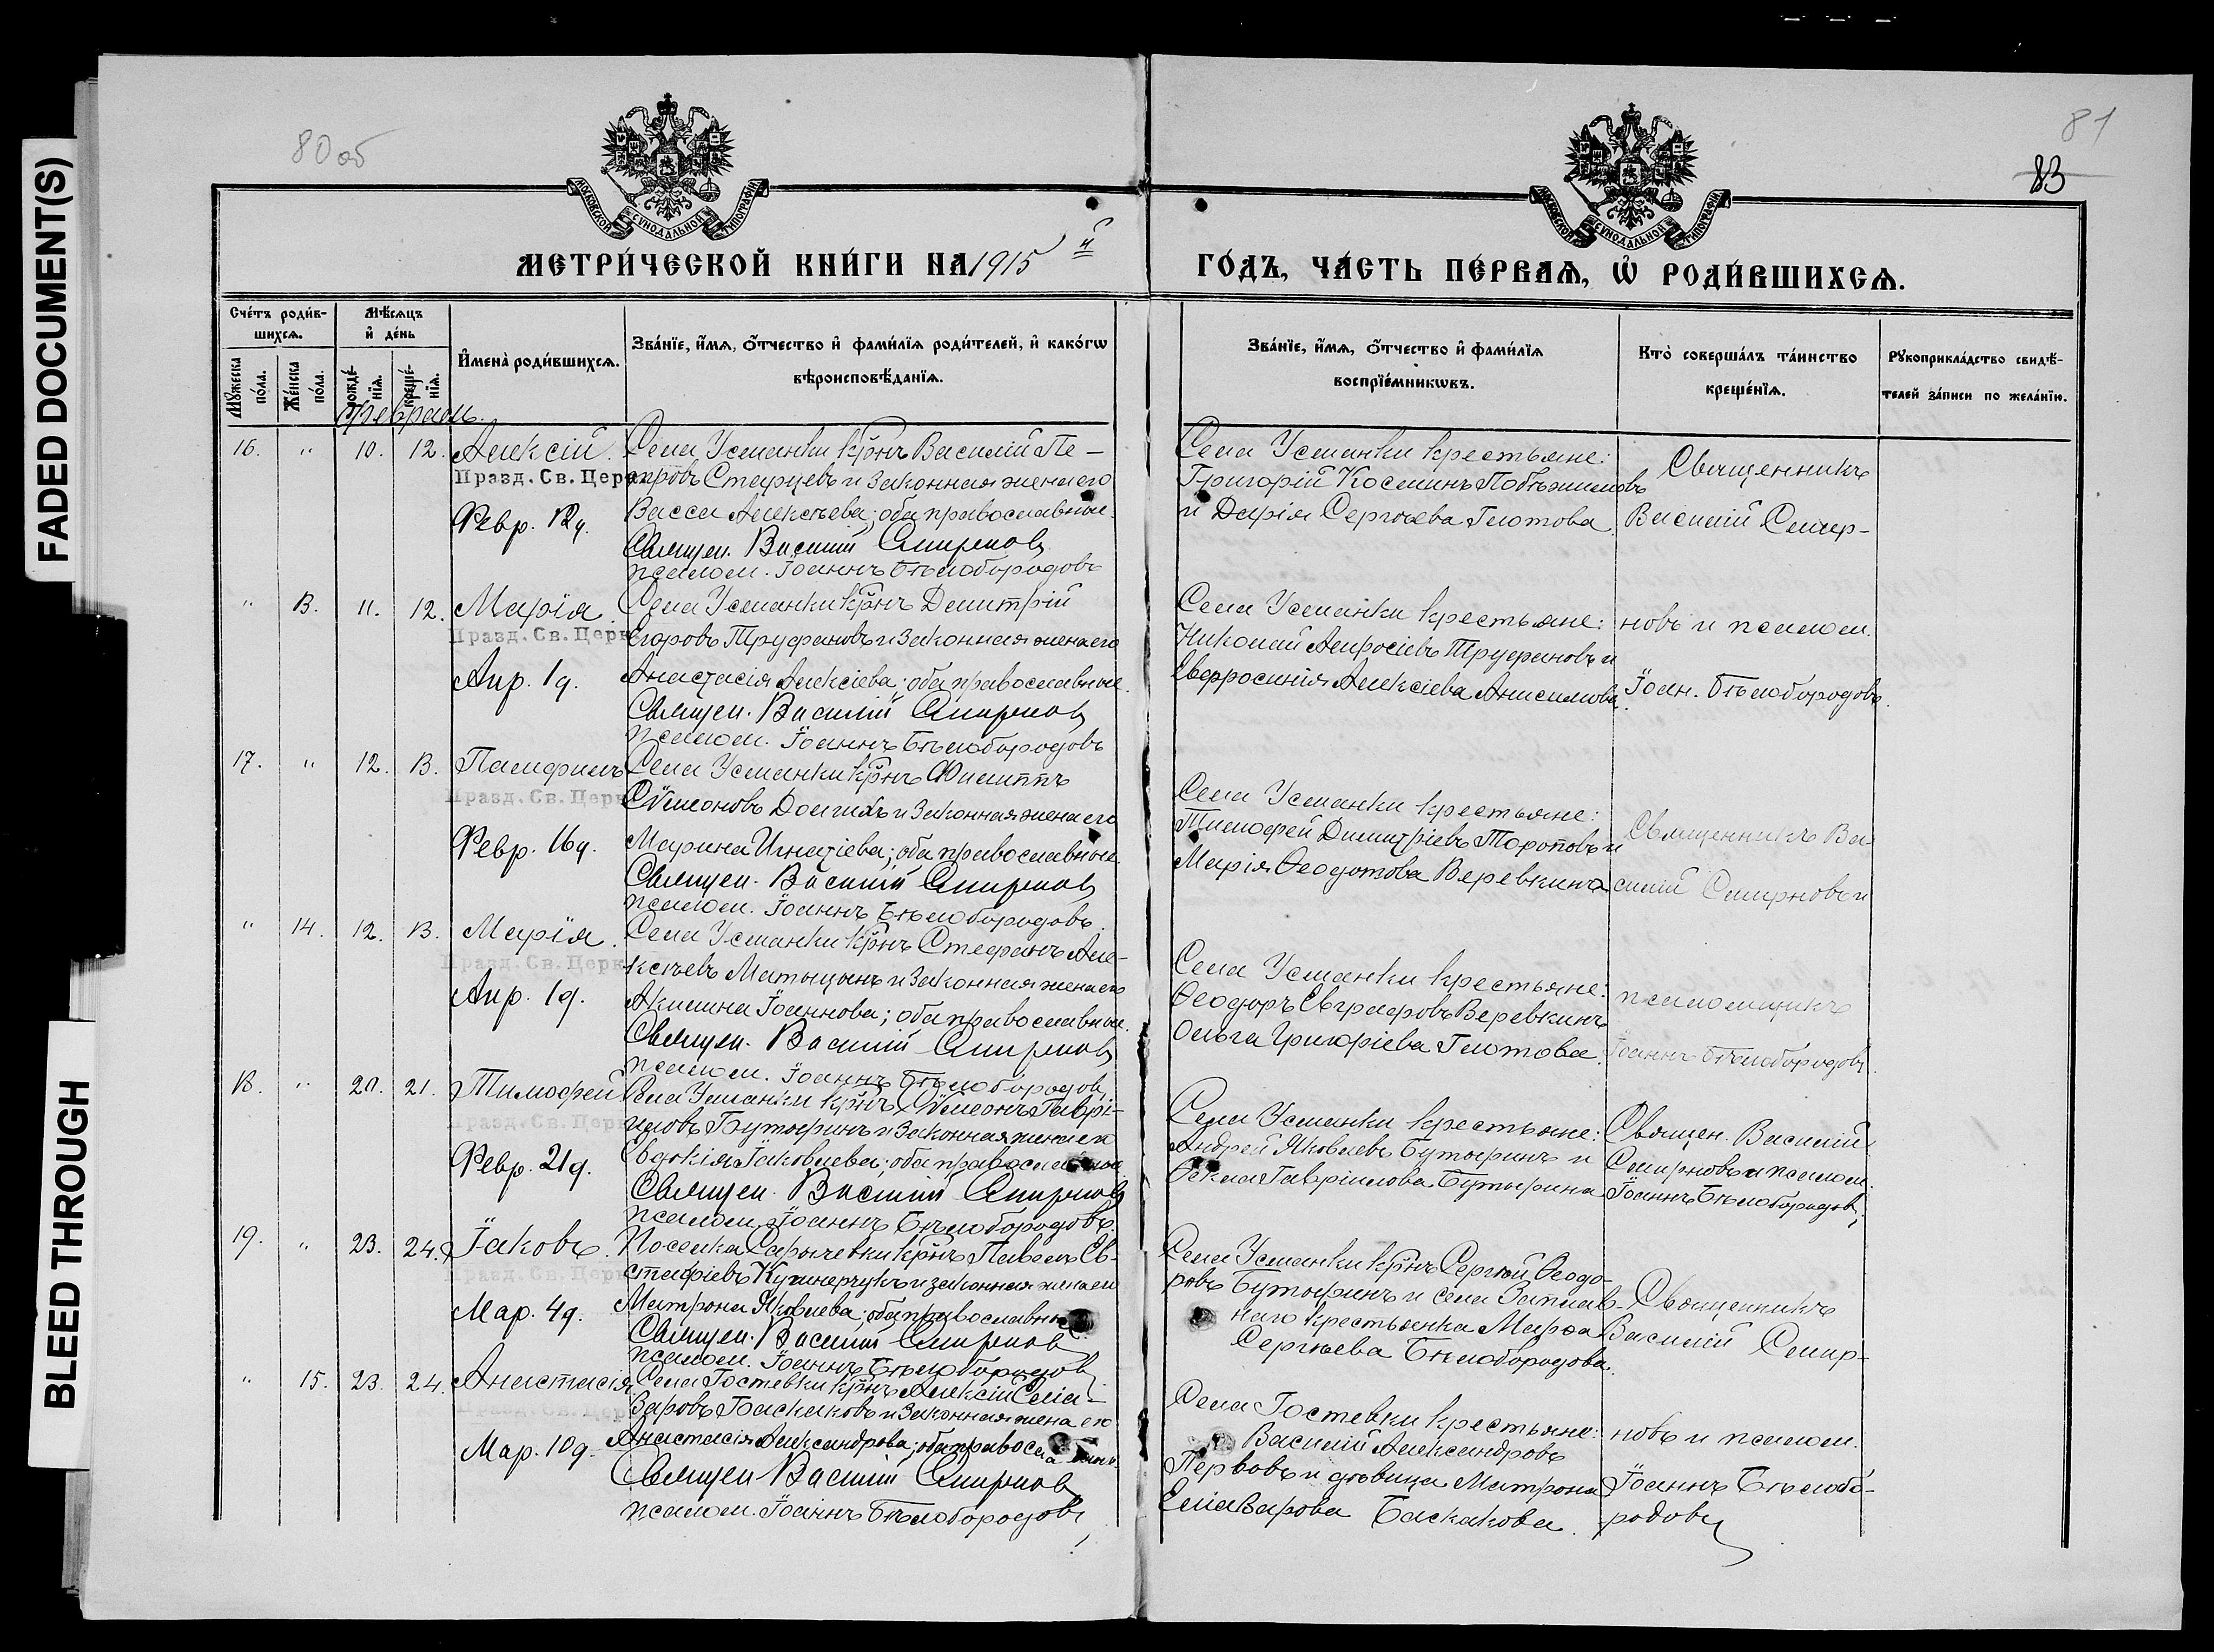 FADED DOCUMENT(S)
BLEED THROUGH
80 об
81
83
МОСКОВСКОЙ СѴНОДАЛЬНОЙ ТИПОГРАФІИ
МОСКОВСКОЙ СѴНОДАЛЬНОЙ ТИПОГРАФІИ
МЕТРИ́ЧЕСКОЙ КНИ́ГИ НА 1915й
ГО́ДЪ, ЧА́СТЬ ПЕ́РВАѦ, Ѡ҆ РОДИ́ВШИХСѦ.
Сче́тъ роди́в-
шихсѧ.
Мꙋ́жеска по́ла.
Же́нска по́ла.
Мѣ́сѧцъ
и҆ де́нь
рожде́-нїѧ.
креще́-нїѧ.
И҆мена̀ роди́вшихсѧ.
Зва́нїе, и҆́мѧ, ѻ҆́тчество и҆ фами́лїѧ роди́телей, и҆ како́гѡ
вѣроисповѣ́данїѧ.
Зва́нїе, и҆́мѧ, ѻ҆́тчество и҆ фами́лїѧ
воспрїе́мникѡвъ.
Кто̀ соверша́лъ та́инство
креще́нїѧ.
Рꙋкоприкла́дство свидѣ́-
телей за́писи по жела́нїю.
Февраль.
16. " 10. 12. Алексій.
Празд. Св. Церк
Февр. 12д.
Села Усманки крнъ Василій Пе-
тровъ Старцевъ и законная жена его
Васса Алексѣева; оба православные.
Священ. Василій Смирновъ
псалом. Іоаннъ Бѣлобородовъ
Села Усманки крестьяне:
Григорій Косминъ Побѣжимовъ
и Дарія Сергѣева Глотова.
Священникъ
Василій Смир-
" 13. 11. 12. Марія.
Празд. Св. Церк
Апр. 1д.
Села Усманки крнъ Димитрій
Егоровъ Труфановъ и законная жена его
Анастасія Алексіева; оба православные.
Священ. Василій Смирновъ
псалом. Іоаннъ Бѣлобородовъ
Села Усманки крестьяне:
Николай Амросіевъ Труфановъ и
Евфросинія Алексіева Анисимова.
новъ и псалом.
Іоан. Бѣлобородовъ.
17. " 12. 13. Памфилъ
Празд. Св. Церк
Февр. 16д.
Села Усманки крнъ Филиппъ
Сѵмеоновъ Долгихъ и законная жена его
Марина Игнатіева; оба православные.
Священ. Василій Смирновъ
псалом. Іоаннъ Бѣлобородовъ.
Села Усманки крестьяне:
Тимофей Димитріевъ Тороповъ и
Марія Ѳеодотова Веревкина
Священникъ Ва
силій Смирновъ и
" 14. 12. 13. Марія.
Празд. Св. Церк
Апр. 1д.
Села Усманки крнъ Стефанъ Але-
ксѣевъ Матыцынъ и законная жена его
Акилина Іоаннова; оба православные.
Священ. Василій Смирновъ
псалом. Іоаннъ Бѣлобородовъ
Села Усманки крестьяне:
Ѳеодоръ Евграфовъ Веревкинъ
Ольга Григоріева Глотова.
псаломщикъ
Іоаннъ Бѣлобородовъ.
18. " 20. 21. Тимофей
Празд. Св. Церк
Февр. 21д.
Села Усманки крнъ Сѵмеонъ Гаврі-
иловъ Бутыринъ и законная жена его
Евдокія Іаковлева; оба православные
Священ. Василій Смирновъ
псалом. Іоаннъ Бѣлобородовъ.
Села Усманки крестьяне:
Андрей Яковлевъ Бутыринъ и
Ѳекла Гавріилова Бутырина
Священ. Василій
Смирновъ и псалом.
Іоаннъ Бѣлобородовъ.
19. " 23. 24. Іаковъ.
Празд. Св. Церк
Мар. 4д.
Поселка Сарычевки крнъ Павелъ Ев-
стафіевъ Кушнерчукъ и законная жена его
Матрона Яковлева; оба православные
Священ. Василій Смирновъ
псалом. Іоаннъ Бѣлобородовъ
Села Усманки крнъ Сергѣй Ѳеодо-
ровъ Бутыринъ и села Заплав-
наго крестьянка Марѳа
Сергѣева Бѣлобородова.
Священникъ
Василій Смир-
" 15. 23. 24. Анастасія.
Празд. Св. Церк
Мар. 10д.
Села Гостевки крнъ Алексій Еліа-
заровъ Баскаковъ и законная жена его
Анастасія Александрова; оба православные.
Священ. Василій Смирновъ
псалом. Іоаннъ Бѣлобородовъ
Села Гостевки крестьяне:
Василій Александровъ
Первовъ и дѣвица Матрона
Еліазарова Баскакова.
новъ и псалом.
Іоаннъ Бѣлобо-
родовъ